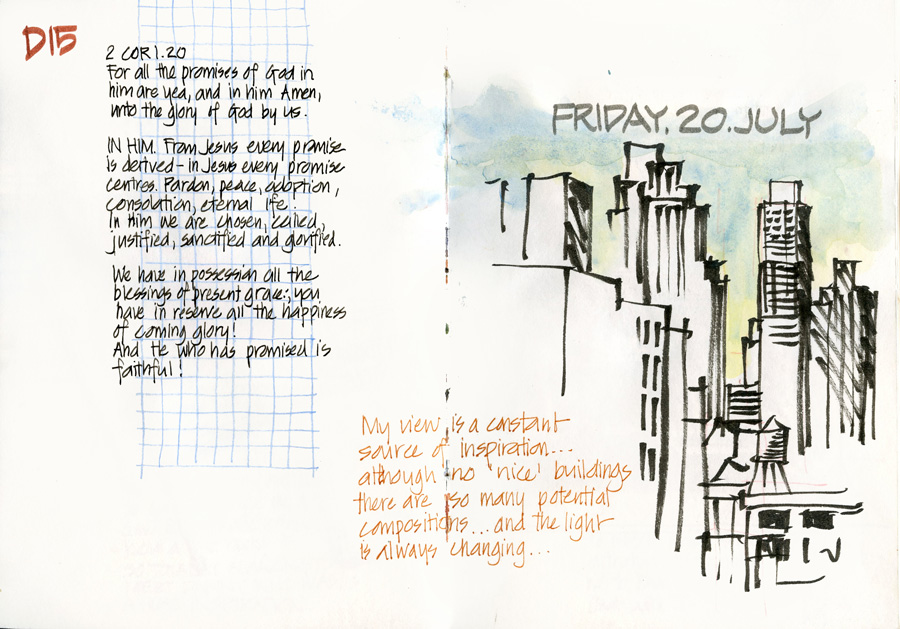 D15
2 COR 1.20
For all the promises of God in
him are yea, and in him Amen,
unto the glory of God by us.
IN HIM. From Jesus every promise
is derived - in Jesus every promise
centres. Pardon, peace, adoption,
consolation, eternal life.
In Him we are chosen, called,
justified, sanctified and glorified.
We have in possession all the
blessings of present grace:, you
have in reserve all the happiness
of coming glory!
And He who has promised is
faithful!
FRIDAY. 20. JULY
My view is a constant
source of inspiration...
although no 'nice' buildings
there are so many potential
compositions... and the light
is always changing...